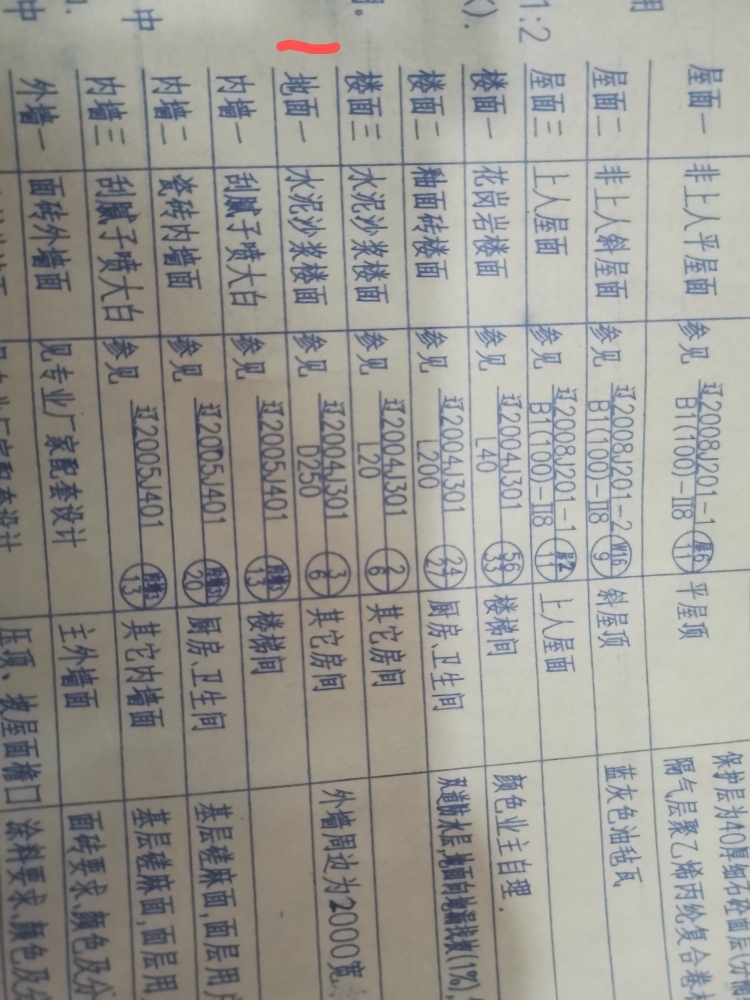 用
1:2
中
中
屋面一 非上人平屋面 参见 辽2008J201-1 屋6
B1(100)-II8 11 平屋顶
保护层为40厚细石砼面层(分
隔气层聚乙烯丙纶复合卷
屋面二 非上人斜屋面 参见 辽2008J201-2 W16
B1(100)-II8 9 斜屋顶 蓝灰色油毡瓦
屋面三 上人屋面 参见 辽2008J201-1 屋2
B1(100)-II8 11 上人屋面
楼面一 花岗岩楼面 参见 辽2004J301 56
L40 33 楼梯间 颜色业主自理.
楼面二 釉面砖楼面 参见 辽2004J301 24
L200 27 厨房、卫生间 双道防水层,地面向地漏找坡(1%),
楼面三 水泥沙浆楼面 参见 辽2004J301 2
L20 6 其它房间
地面一 水泥沙浆楼面 参见 辽2004J301 3
D250 6 其它房间 外墙周边为2000宽
内墙一 刮腻子喷大白 参见 辽2005J401 13 楼梯间
内墙二 瓷砖内墙面 参见 辽2005J401 20 厨房、卫生间 基层槎麻面,面层用户
内墙三 刮腻子喷大白 参见 辽2005J401 13 其它内墙面 基层槎麻面,面层用
外墙一 面砖外墙面 见专业厂家配套设计 主外墙面 面砖要求、颜色及分
见专业厂家配套设计 压顶、坡屋面檐口 涂料要求、颜色及分